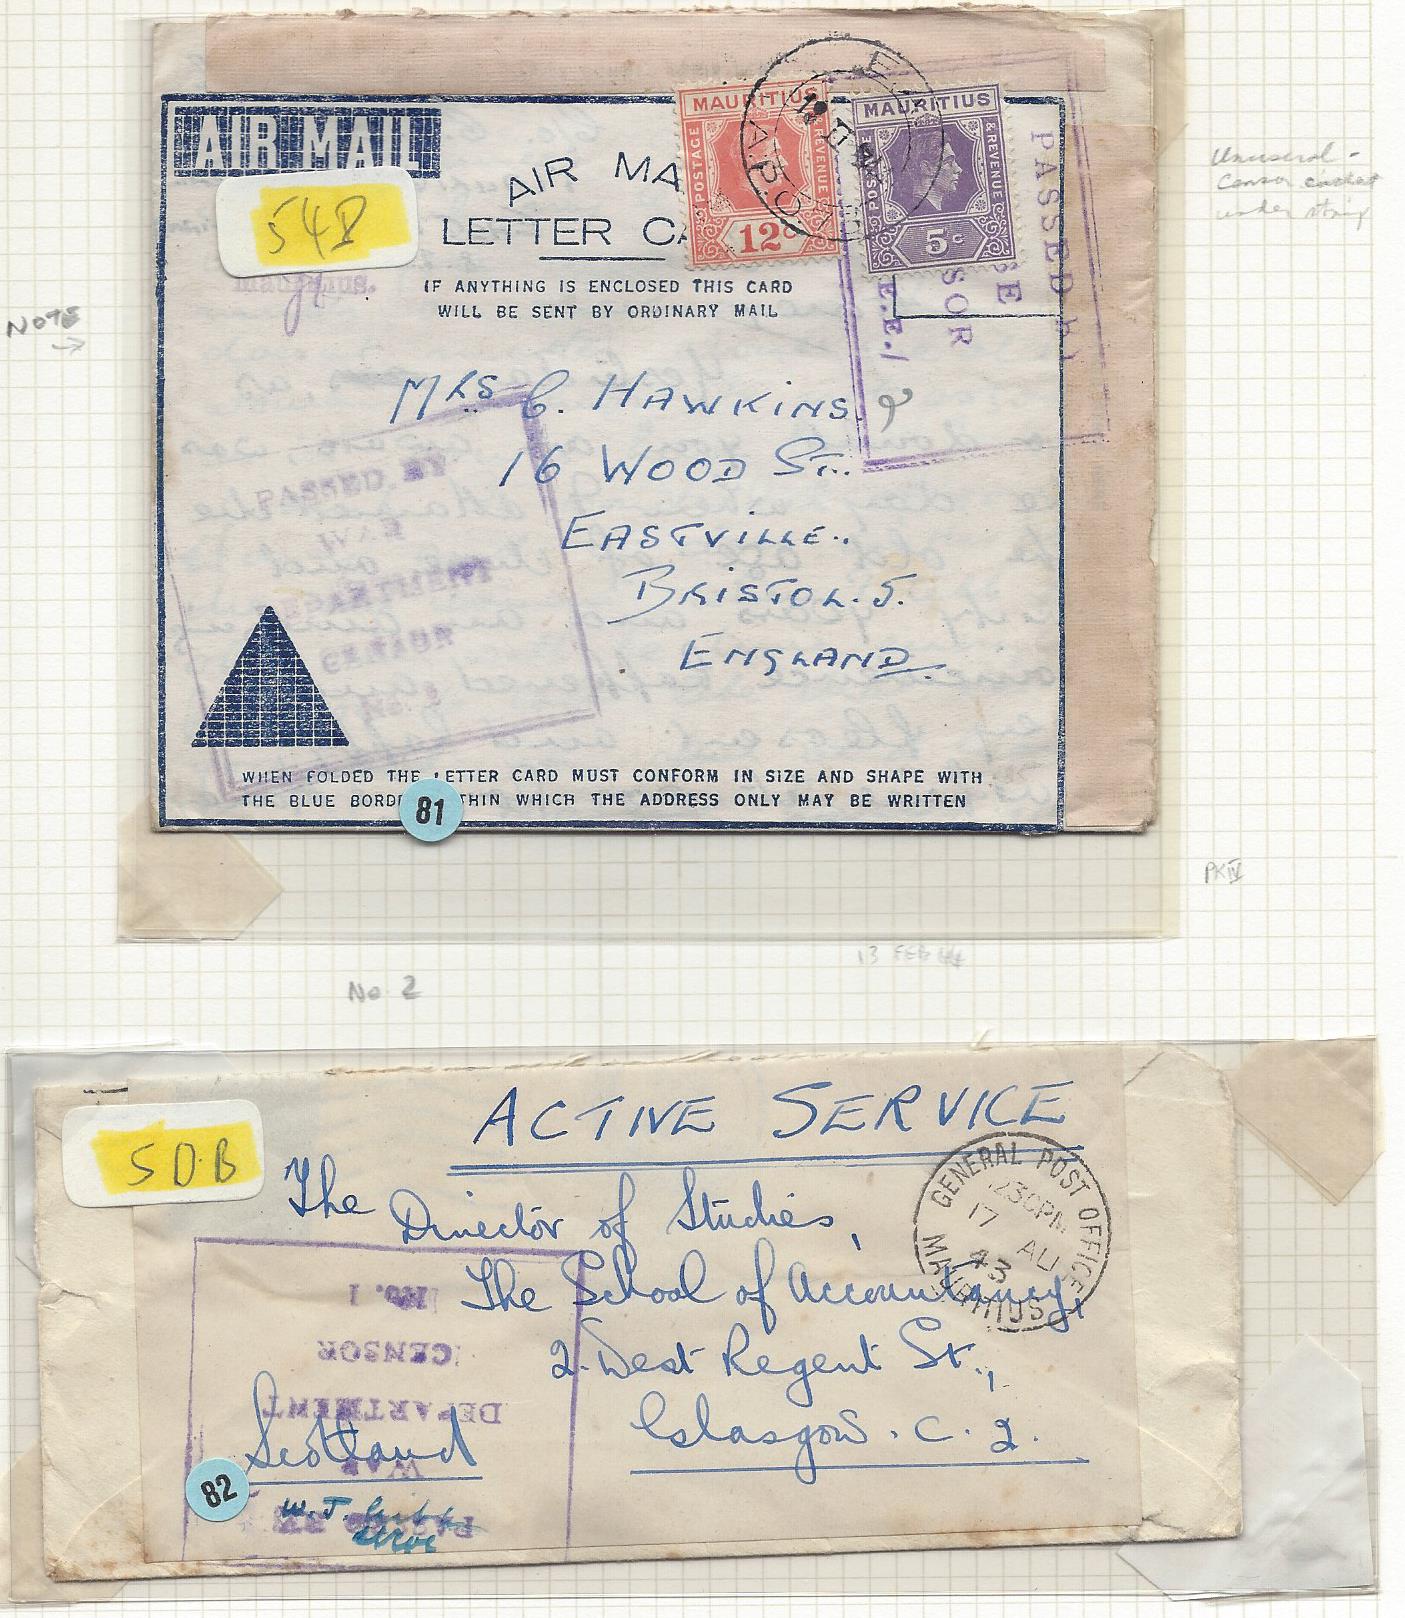 AIR MAIL
AIR MA
LETTER CA
MAURITIUS
POSTAGE
& REVENUE
12c
MAURITIUS
POSTAGE
& REVENUE
5c
E
A.P.O.
54B
Mauritius.
IF ANYTHING IS ENCLOSED THIS CARD
WILL BE SENT BY ORDINARY MAIL
PASSED BY
SE
SOR
E.E./
Unusual -
Censor cachet
under strip
NOTE
MRS C. HAWKINS.
16 WOOD ST..
EASTVILLE..
BRISTOL. 5.
ENGLAND.
PASSED BY
WAR
DEPARTMENT
CENSOR
No. 2
WHEN FOLDED THE LETTER CARD MUST CONFORM IN SIZE AND SHAPE WITH
THE BLUE BORDE THIN WHICH THE ADDRESS ONLY MAY BE WRITTEN
81
PKIV
13 FEB 44
No 2
ACTIVE SERVICE
5D.B
The
Director of Studies,
The School of Accountancy,
2. West Regent St.,
Glasgow. C. 2.
Scotland
GENERAL POST OFFICE
30PM
17 AU
43
MAURITIUS
No. 1
CENSOR
DEPARTMENT
WAR
PASSED BY
82
W. J.